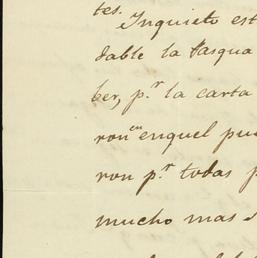 tes.
Inquieto est
dable la Pasqua
ber, p.r la carta
ron en enquel pu
ron p.r todas p
mucho mas s